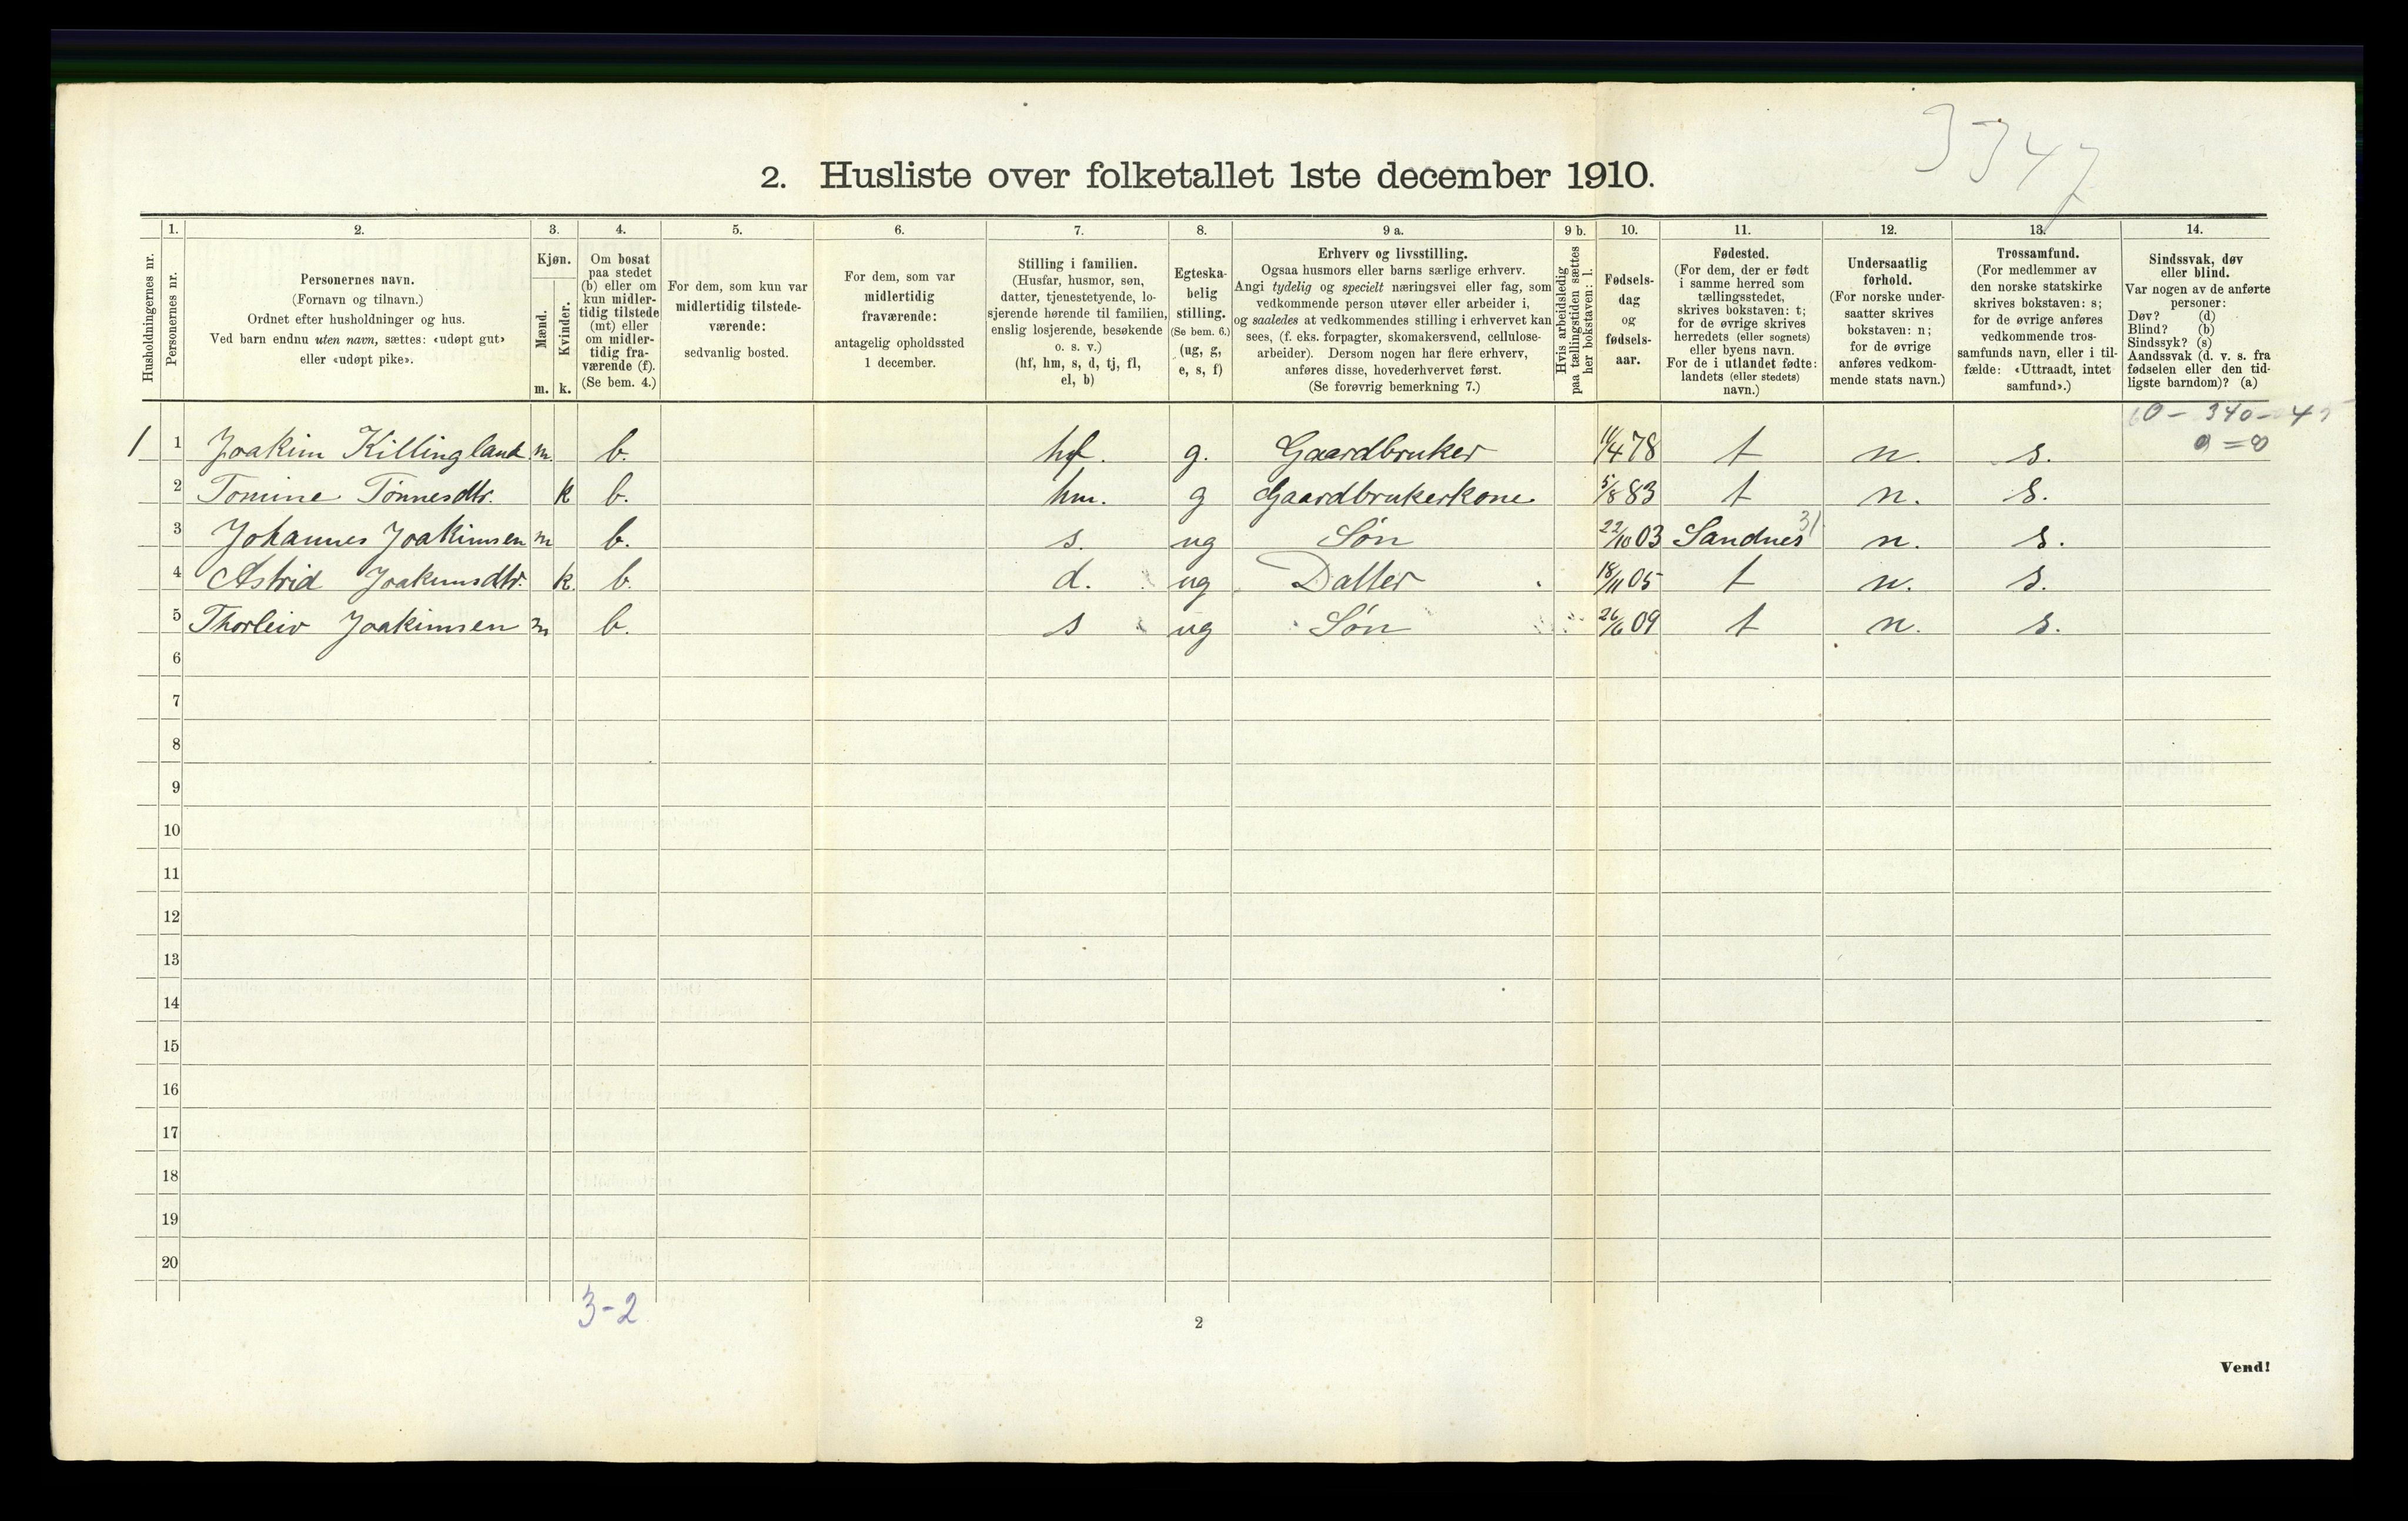 3347
2. Husliste over folketallet 1ste december 1910.
Husholdningernes nr.
1.
Personernes nr.
2.
Personernes navn.
(Fornavn og tilnavn.)
Ordnet efter husholdninger og hus.
Ved barn endnu uten navn, sættes: «udøpt gut»
eller «udøpt pike».
3.
Kjøn.
Mænd.
Kvinder.
m. k.
4.
Om bosat
paa stedet
(b) eller om
kun midler-
tidig tilstede
(mt) eller
om midler-
tidig fra-
værende (f).
(Se bem. 4.)
5.
For dem, som kun var
midlertidig tilstede-
værende:
sedvanlig bosted.
6.
For dem, som var
midlertidig
fraværende:
antagelig opholdssted
1 december.
7.
Stilling i familien.
(Husfar, husmor, søn,
datter, tjenestetyende, lo-
sjerende hørende til familien,
enslig losjerende, besøkende
o. s. v.)
(hf, hm, s, d, tj, fl,
el, b)
8.
Egteska-
belig
stilling.
(Se bem. 6.)
(ug, g,
e, s, f)
9 a.
Erhverv og livsstilling.
Ogsaa husmors eller barns særlige erhverv.
Angi tydelig og specielt næringsvei eller fag, som
vedkommende person utøver eller arbeider i,
og saaledes at vedkommendes stilling i erhvervet kan
sees, (f. eks. forpagter, skomakersvend, cellulose-
arbeider). Dersom nogen har flere erhverv,
anføres disse, hovederhvervet først.
(Se forøvrig bemerkning 7.)
9 b.
Hvis arbeidsledig
paa tællingstiden sættes
her bokstaven: l.
10.
Fødsels-
dag
og
fødsels-
aar.
11.
Fødested.
(For dem, der er født
i samme herred som
tællingsstedet,
skrives bokstaven: t;
for de øvrige skrives
herredets (eller sognets)
eller byens navn.
For de i utlandet fødte:
landets (eller stedets)
navn.)
12.
Undersaatlig
forhold.
(For norske under-
saatter skrives
bokstaven: n;
for de øvrige
anføres vedkom-
mende stats navn.)
13.
Trossamfund.
(For medlemmer av
den norske statskirke
skrives bokstaven: s;
for de øvrige anføres
vedkommende tros-
samfunds navn, eller i til-
fælde: «Uttraadt, intet
samfund».)
14.
Sindssvak, døv
eller blind.
Var nogen av de anførte
personer:
Døv? (d)
Blind? (b)
Sindssyk? (s)
Aandssvak (d. v. s. fra
fødselen eller den tid-
ligste barndom)? (a)
1 1 Joakim Killingland m. b. hf. g. Gaardbruker 78 t n. s.
2 Tomine Tønnesdtr. k b. hm. g Gaardbrukerkone 5/8 83 t n. s.
3 Johannes Joakimsen m b. s. ug Søn 22/10 03 Sandnes 31 n. s.
4 Astrid Joakimsdtr. k. b. d. ug Datter 18/11 05 t n. s.
5 Thorleiv Joakimsen m b. s ug Søn 26/6 09 t n. s.
6
7
8
9
10
11
12
13
14
15
16
17
18
19
20
3-2
2
Vend!